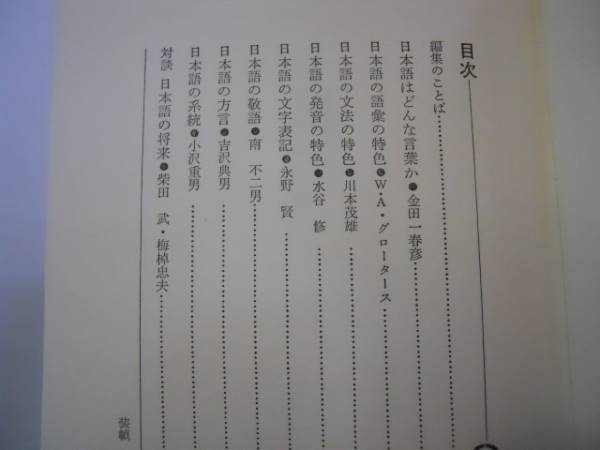 目次
編集のことば
日本語はどんな言葉か 金田一春彦
日本語の語彙の特色 W・A・グロータース
日本語の文法の特色 川本茂雄
日本語の発音の特色 水谷 修
日本語の文字表記 永野 賢
日本語の敬語 南 不二男
日本語の方言 吉沢典男
日本語の系統 小沢重男
対談 日本語の将来 柴田 武・梅棹忠夫
装幀